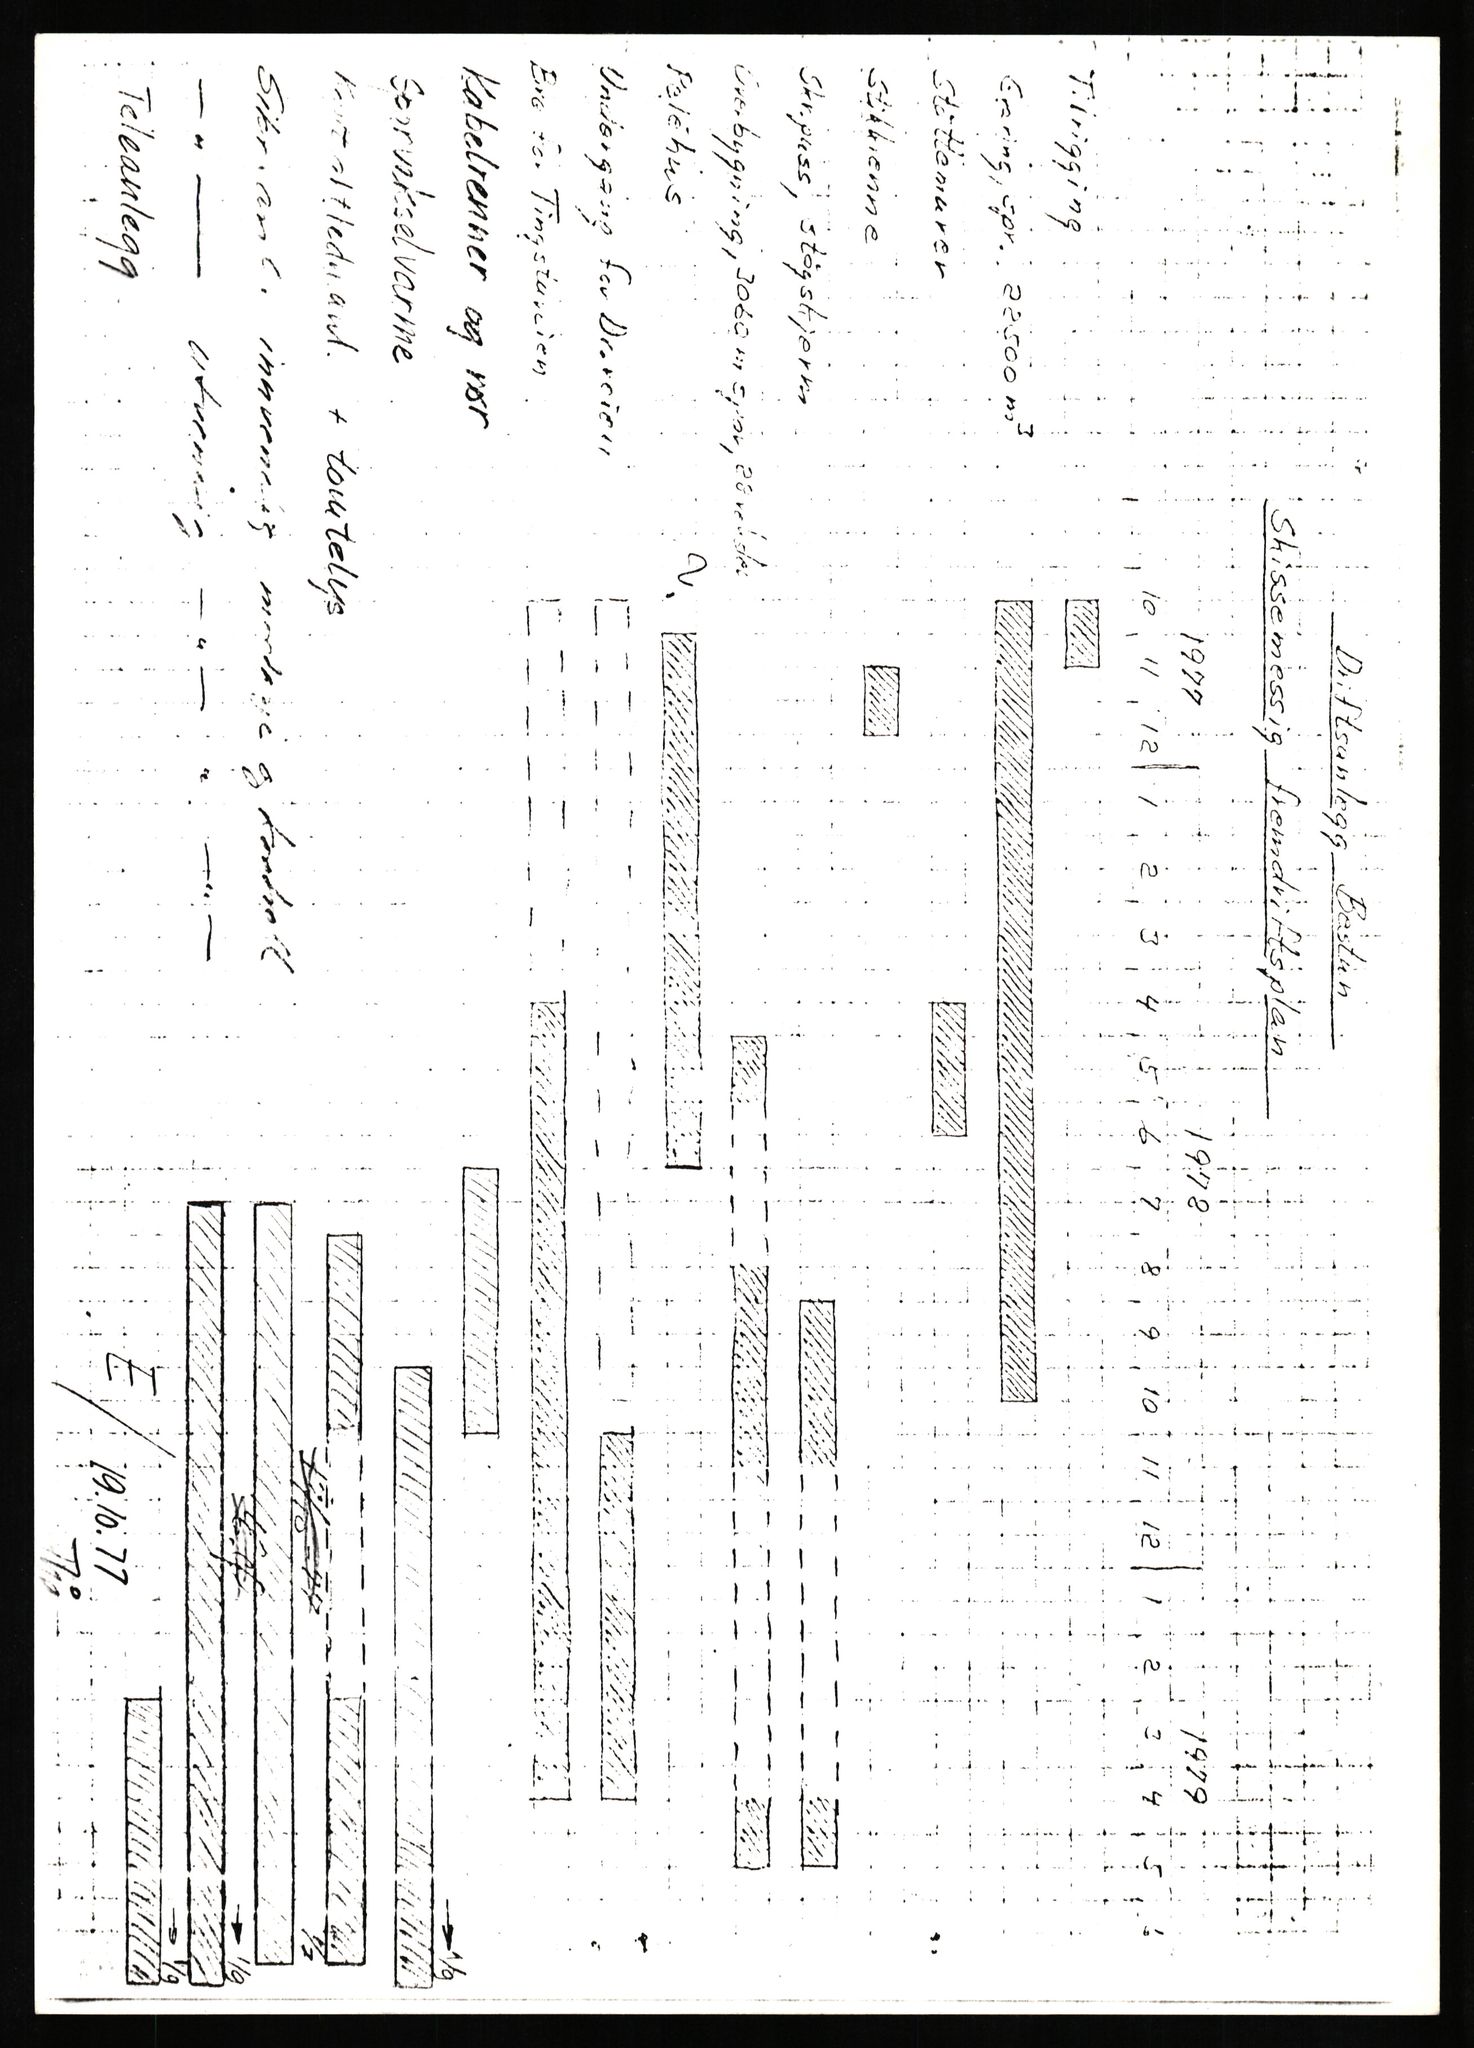 Driftsanlegg Bestun
Skissemessig fremdriftsplan
1977 1978 1979
10 11 12 1 2 3 4 5 6 7 8 9 10 11 12 1 2 3 4 5 6
Tilrigging
Graving, spr. 22500 m³
Støttemurer
Stikkrenne
Skr.puss, støyskjerm
Overbygning, 3060 m spor, 28 veksler
Pelehus
Undergang for Dr.veien
Bro for Tingstuveien
Kabelrenner og rør
Sporvekselvarme
+ tomtelys
Sikr.anl. innvendig montasje og kontroll
— " — utvendig — " — " — " —
Teleanlegg
→ 1/9
1/7
→ 1/9
→ 1/9
E/ 19.10.77